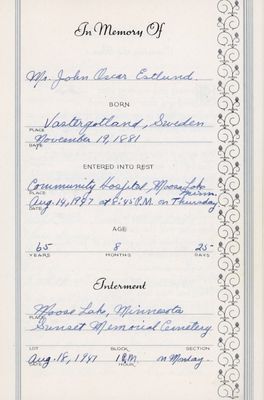 In Memory Of
Mr. John Oscar Estlund.
BORN
Vastergotland, Sweden
PLACE
November 19, 1881
DATE
ENTERED INTO REST
Community Hospital, Moose Lake
PLACE Minn.
Aug. 14, 1947 at 8:45 P.M. on Thursday
DATE
AGE
65 8 25
YEARS MONTHS DAYS
Interment
Moose Lake, Minnesota
PLACE
Sunset Memorial Cemetery
LOT BLOCK SECTION
Aug. 18, 1947 1 P.M. on Monday
DATE HOUR